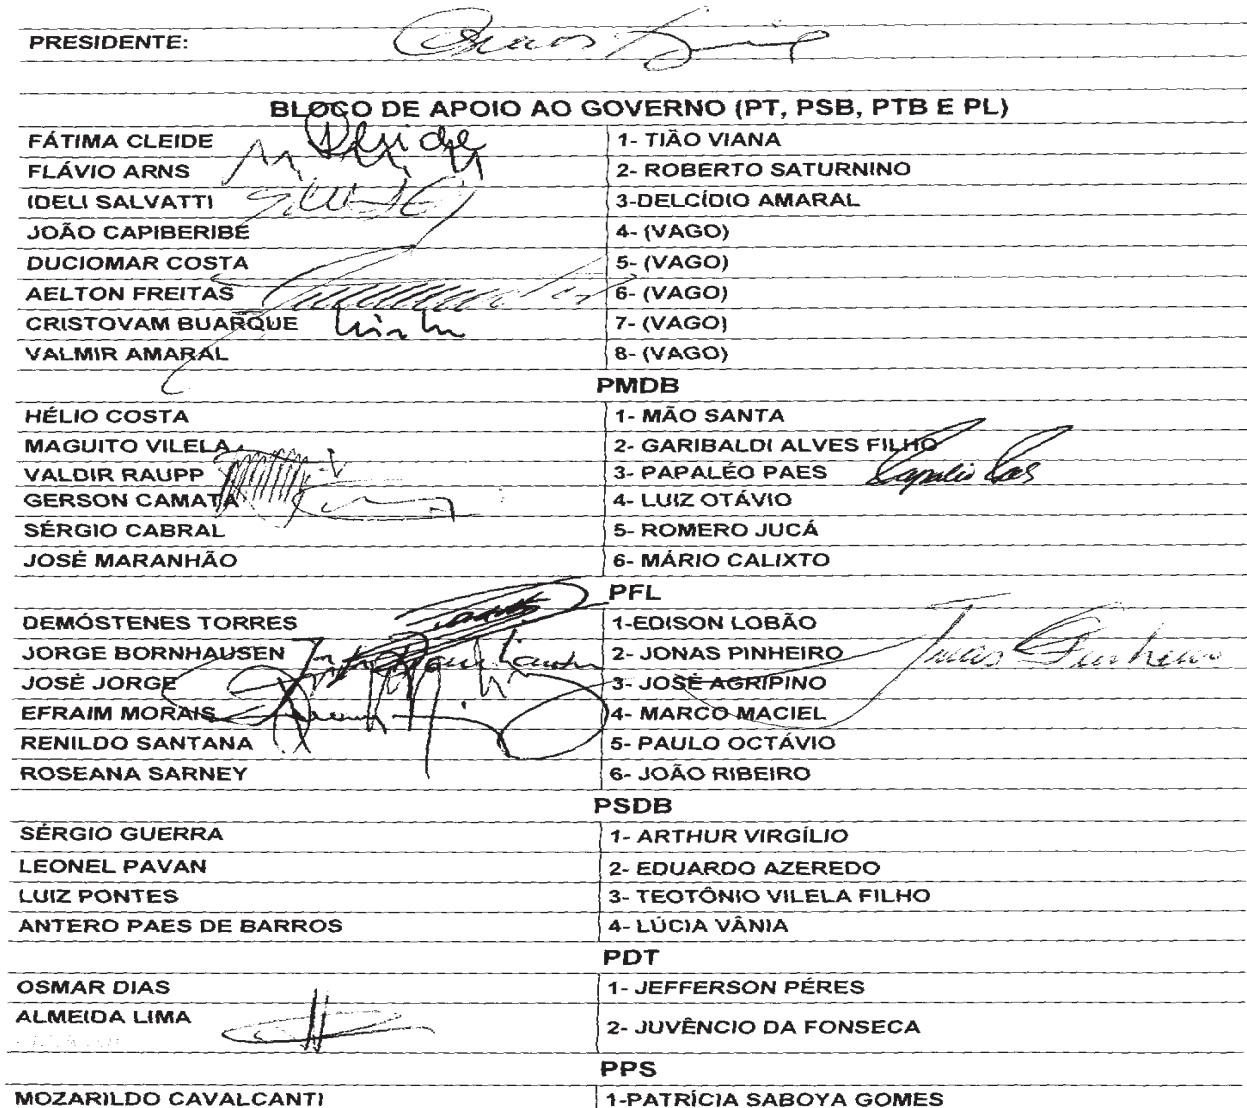 PRESIDENTE:
BLOCO DE APOIO AO GOVERNO (PT, PSB, PTB E PL)
FÁTIMA CLEIDE 1- TIÃO VIANA
FLÁVIO ARNS 2- ROBERTO SATURNINO
IDELI SALVATTI 3-DELCÍDIO AMARAL
JOÃO CAPIBERIBE 4- (VAGO)
DUCIOMAR COSTA 5- (VAGO)
AELTON FREITAS 6- (VAGO)
CRISTOVAM BUARQUE 7- (VAGO)
VALMIR AMARAL 8- (VAGO)
PMDB
HÉLIO COSTA 1- MÃO SANTA
MAGUITO VILELA 2- GARIBALDI ALVES FILHO
VALDIR RAUPP 3- PAPALÉO PAES Papaléo Paes
GERSON CAMATA 4- LUIZ OTÁVIO
SÉRGIO CABRAL 5- ROMERO JUCÁ
JOSÉ MARANHÃO 6- MÁRIO CALIXTO
PFL
DEMÓSTENES TORRES 1-EDISON LOBÃO
JORGE BORNHAUSEN 2- JONAS PINHEIRO Jonas Pinheiro
JOSÉ JORGE 3- JOSÉ AGRIPINO
EFRAIM MORAIS 4- MARCO MACIEL
RENILDO SANTANA 5- PAULO OCTÁVIO
ROSEANA SARNEY 6- JOÃO RIBEIRO
PSDB
SÉRGIO GUERRA 1- ARTHUR VIRGÍLIO
LEONEL PAVAN 2- EDUARDO AZEREDO
LUIZ PONTES 3- TEOTÔNIO VILELA FILHO
ANTERO PAES DE BARROS 4- LÚCIA VÂNIA
PDT
OSMAR DIAS 1- JEFFERSON PÉRES
ALMEIDA LIMA 2- JUVÊNCIO DA FONSECA
PPS
MOZARILDO CAVALCANTI 1-PATRÍCIA SABOYA GOMES